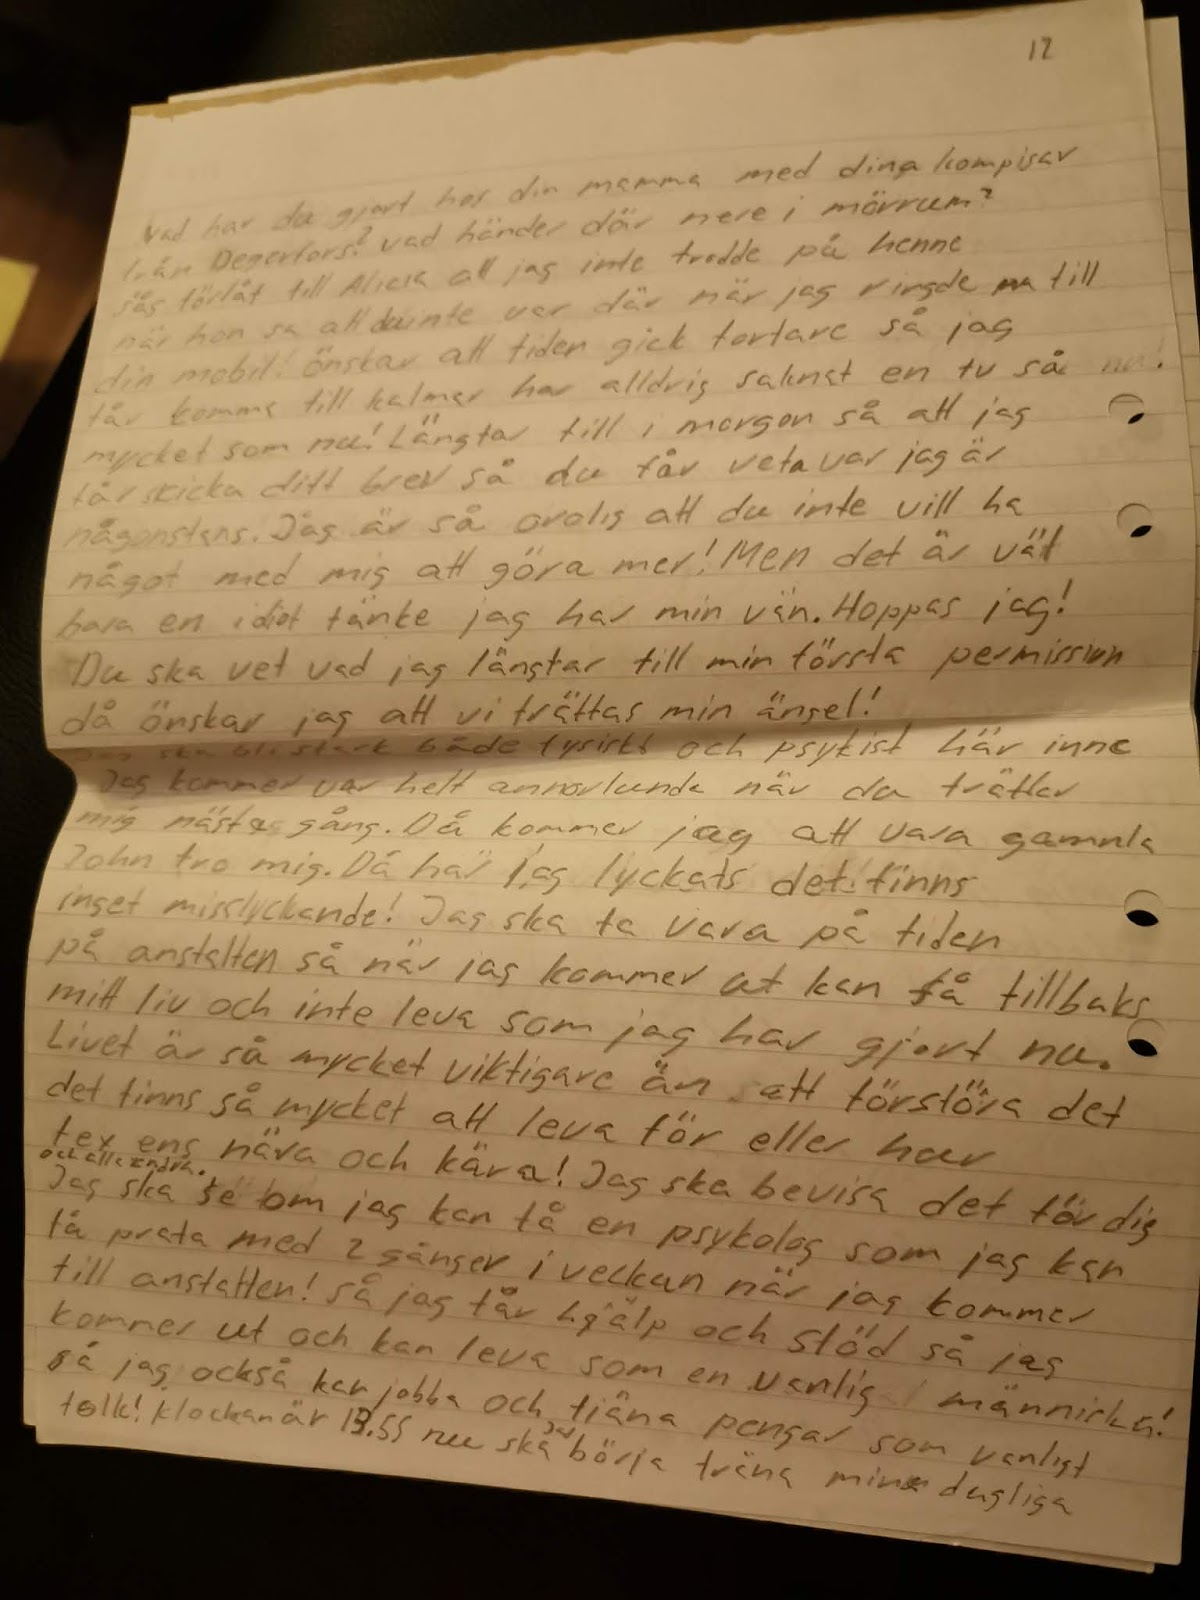 12
Vad har du gjort hos din mamma med dina kompisar
från Degerfors? Vad händer där nere i mörrum?
säg förlåt till Alicia att jag inte trodde på henne
när hon sa att du inte var där när jag ringde till
din mobil! Önskar att tiden gick fortare så jag
får komma till kalmar har alldrig saknat en tv så
mycket som nu! Längtar till i morgon så att jag
får skicka ditt brev så du får veta var jag är
någonstans. Jag är så orolig att du inte vill ha
något med mig att göra mer! Men det är väl
bara en idiot tänke jag har min vän. Hoppas jag!
Du ska vet vad jag längtar till min första permission
då önskar jag att vi träffas min ängel!
Jag ska bli stark både fysiskt och psykist här inne
Jag kommer var helt annorlunda när du träffar
mig nästa gång. Då kommer jag att vara gamnla
John tro mig. Då har jag lyckats det finns
inget misslyckande! Jag ska ta vara på tiden
på anstalten så när jag kommer ut kan få tillbaks
mitt liv och inte leva som jag har gjort nu.
Livet är så mycket viktigare än att förstöra det
det finns så mycket att leva för eller hur
tex ens nära och kära! Jag ska bevisa det för dig
och alla andra.
Jag ska se om jag kan få en psykolog som jag kan
få prata med 2 gånger i veckan när jag kommer
till anstalten! så jag får hjälp och stöd så jag
kommer ut och kan leva som en vanlig människa!
så jag också kan jobba och tjäna pengar som vanligt
folk! klockan är 13.55 nu ska jag börja träna mina dagliga